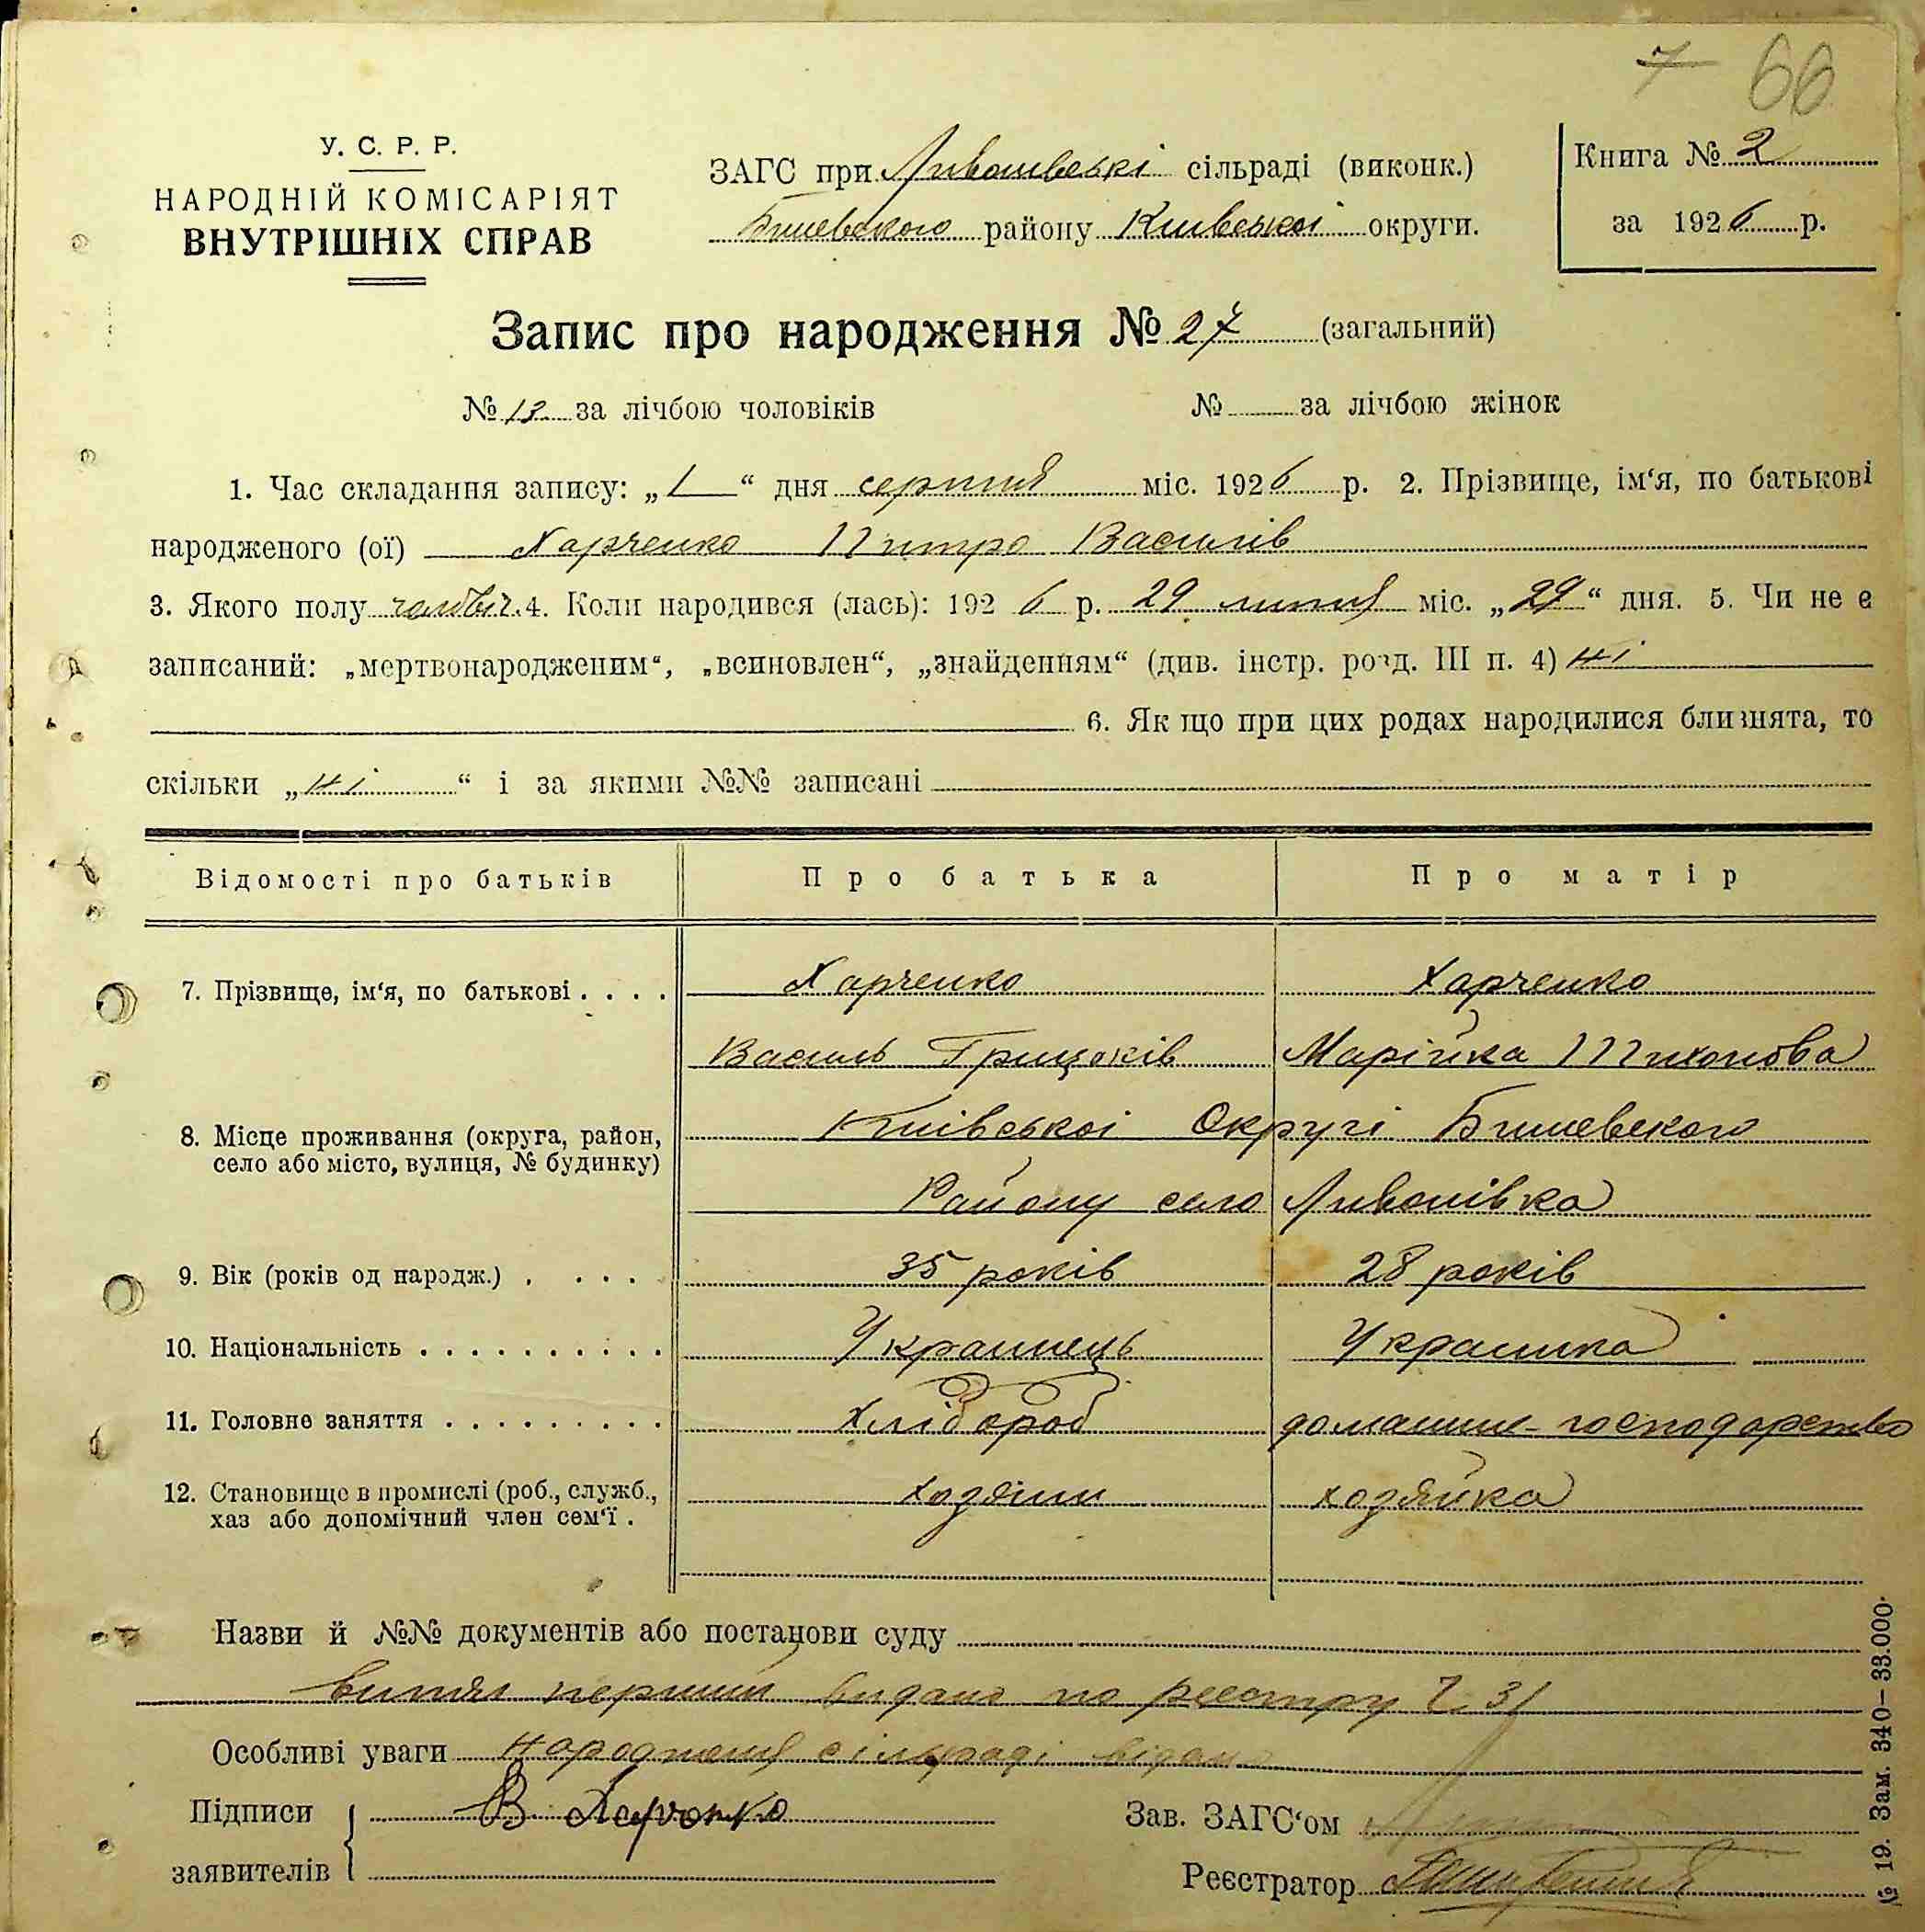 7 66
У. С. Р. Р.
НАРОДНІЙ КОМІСАРІЯТ
ВНУТРІШНІХ СПРАВ
ЗАГС при сільраді (виконк.)
Бишевского району Київської округи.
Книга № 2
за 1926 р.
Запис про народження № 27 (загальний)
№ 13 за лічбою чоловіків № за лічбою жінок
1. Час складання запису: „1“ дня серпня міс. 1926 р. 2. Прізвище, ім‘я, по батькові
народженого (ої) Харченко Питро Василів
3. Якого полу чоловіч. 4. Коли народився (лась): 1926 р. 29 липня міс. „29“ дня. 5. Чи не є
записаний: „мертвонародженим“, „всиновлен“, „знайденням“ (див. інстр. розд. III п. 4) ні
6. Якщо при цих родах народилися близнята, то
скільки „ні“ і за якими №№ записані
Відомості про батьків Про батька Про матір
7. Прізвище, ім‘я, по батькові . . . . Харченко Харченко
Василь Грицьків Марійка Тихонова
8. Місце проживання (округа, район, Київської Округі Бишевского
село або місто, вулиця, № будинку)
Району село Ливонівка
9. Вік (років од народж.) . . . . 35 років 28 років
10. Національність . . . . . . . . . . . Українець Українка
11. Головне заняття . . . . . . . . . Хлібороб домашнє-господарство
12. Становище в промислі (роб., служб., хозяїн хозяйка
хаз або допомічний член сем‘ї .
Назви й №№ документів або постанови суду
витяг перший видано по реєстру Ч 31
Особливі уваги народження сільраді
Підписи В Харченко Зав. ЗАГС‘ом
заявителів Реєстратор
№ 19. Зам. 340—33.000.